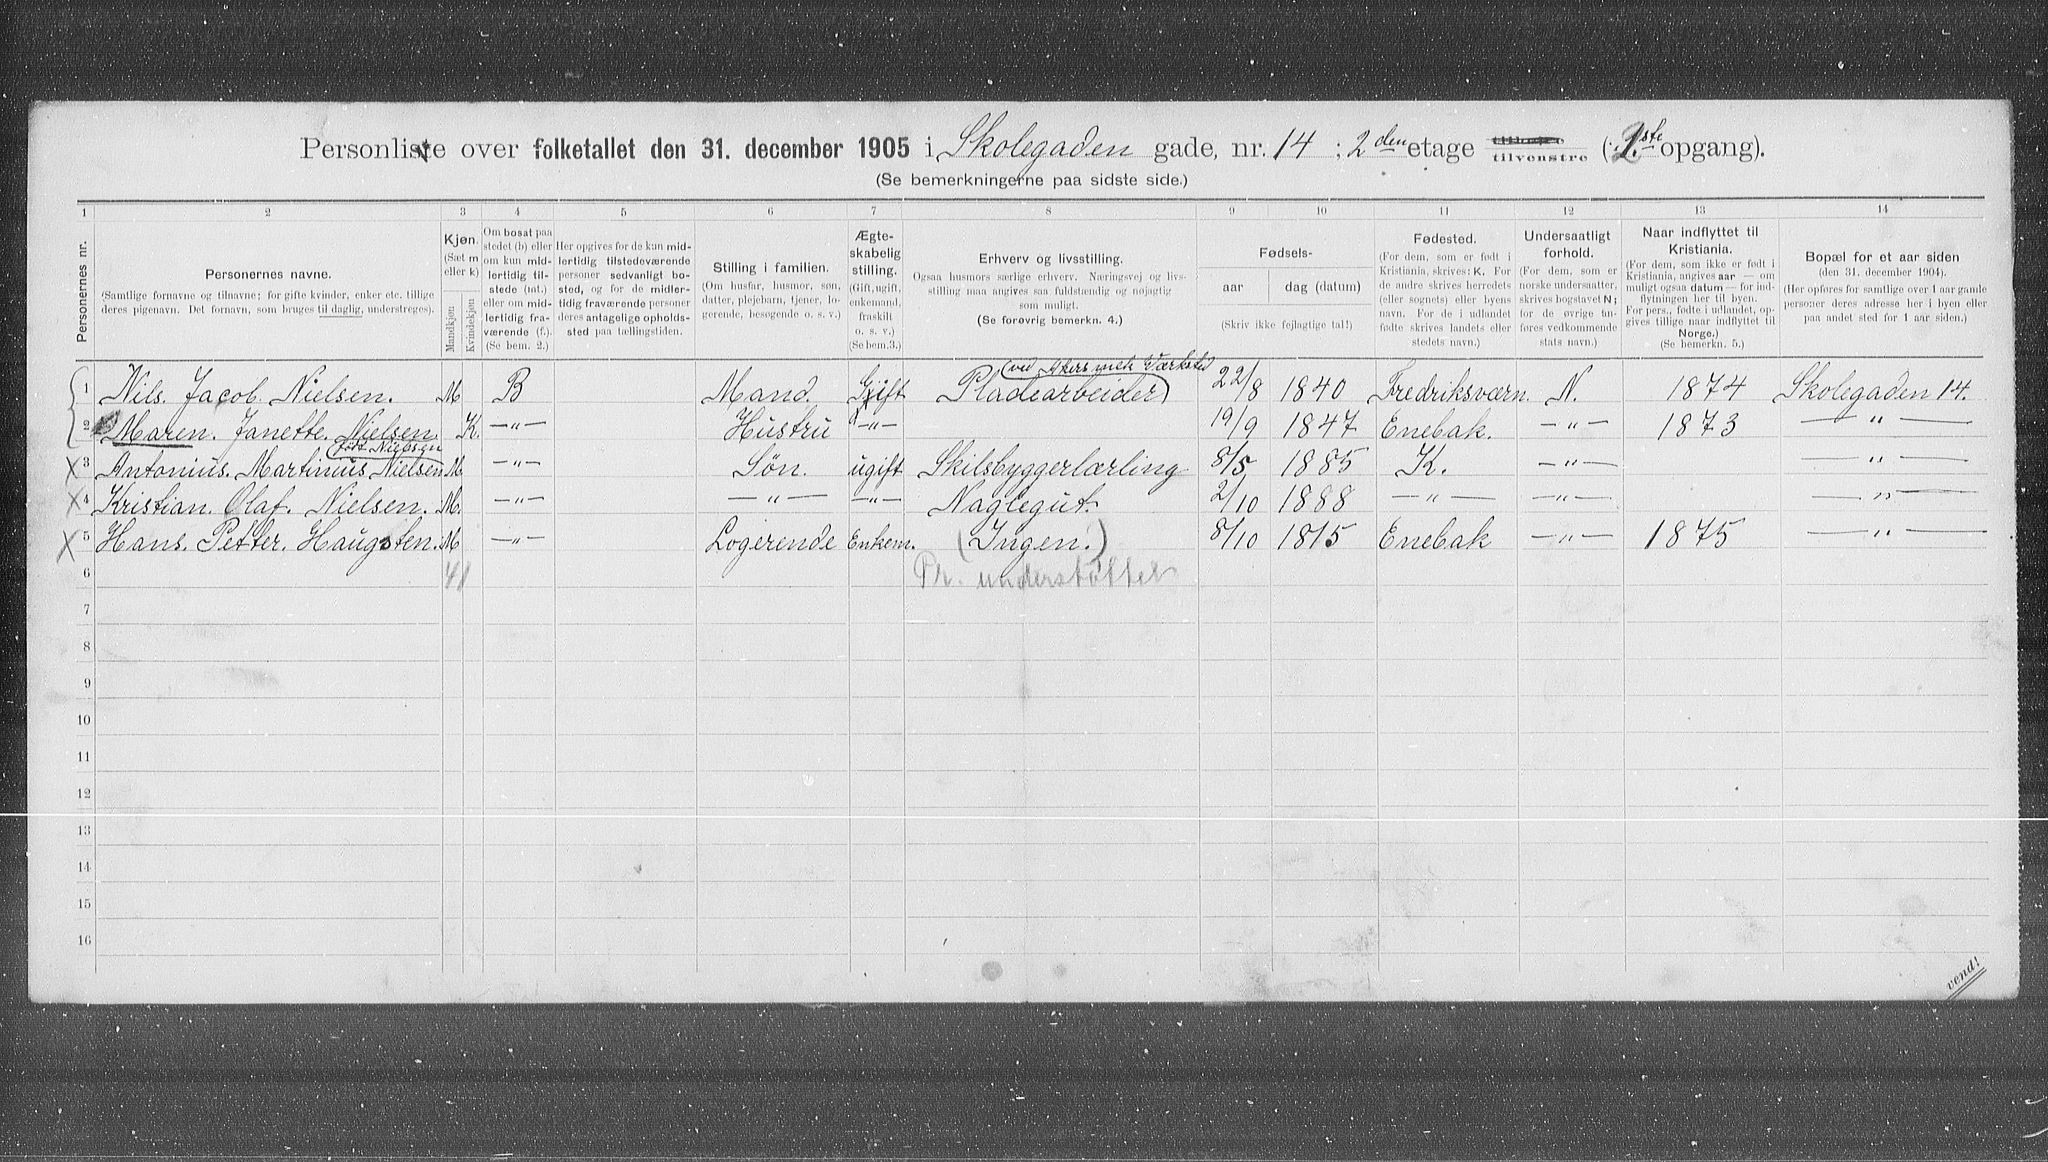 Personliste over folketallet den 31. december 1905 i Skolegaden gade, nr. 14 ; 2den etage tilvenstre (1ste opgang).
(Se bemerkningerne paa sidste side.)
1 2 3 4 5 6 7 8 9 10 11 12 13 14
Personernes nr.
Personernes navne.
(Samtlige fornavne og tilnavne; for gifte kvinder, enker etc. tillige
deres pigenavn. Det fornavn, som bruges til daglig, understreges).
Kjøn.
(Sæt m
eller k)
Mandkjøn
Kvindekjøn
Om bosat paa
stedet (b) eller
om kun mid-
lertidig til-
stede (mt.)
eller om mid-
lertidig fra-
værende (f.).
(Se bem. 2.)
Her opgives for de kun mid-
lertidig tilstedeværende
personer sedvanligt bo-
sted, og for de midler-
tidig fraværende personer
deres antagelige opholds-
sted paa tællingstiden.
Stilling i familien.
(Om husfar, husmor, søn,
datter, plejebarn, tjener, lo-
gerende, besøgende o. s. v.)
Ægte-
skabelig
stilling.
(Gift, ugift,
enkemand,
fraskilt
o. s. v.)
(Se bem.3.)
Erhverv og livsstilling.
Ogsaa husmors særlige erhverv. Næringsvej og livs-
stilling maa angives saa fuldstændig og nøjagtig
som muligt.
(Se forøvrig bemerkn. 4.)
Fødsels-
aar dag (datum)
(Skriv ikke fejlagtige tal!)
Fødested.
(For dem, som er født i
Kristiania, skrives: K. For
de andre skrives herredets
(eller sognets) eller byens
navn. For de i udlandet
fødte skrives landets eller
stedets navn.)
Undersaatligt
forhold.
(For dem, som er
norske undersaatter,
skrives bogstavet N;
for de øvrige un-
føres vedkommende
stats navn.)
Naar indflyttet til
Kristiania.
(For dem, som ikke er født i
Kristiania, angives aar — om
muligt ogsaa datum — for ind-
flytningen her til byen.
For pers., fødte i udlandet, op-
gives tillige naar indflyttet til
Norge.)
(Se bemerkn. 5.)
Bopæl for et aar siden
(den 31. december 1904).
(Her opføres for samtlige over 1 aar gamle
personer deres adresse her i byen eller
paa andet sted for 1 aar siden.)
ved Akers mek Værksted
1 Nils. Jacob. Nielsen. M B Mand. Gift Pladearbeider 22/8 1840 Fredriksværn N. 1874 Skolegaden 14.
2 Maren. Janette. Nielsen K. —„— Hustru —„— 19/9 1847 Enebak. —„— 1873 —„—
født Nielsen
3 Antonius. Martinus Nielsen M. —„— Søn. ugift Skibsbyggerlærling 8/5 1885 K. —„— —„—
4 Kristian. Olaf. Nielsen. M. —„— —„— —„— Naglegut. 2/10 1888 —„— —„— —„—
5 Hans. Petter. Haugsten. M —„— Logerende Enkem. (Ingen.) 8/10 1815 Enebak —„— 1875 —„—
6 4/1 Pr. understøttet
7
8
9
10
11
12
13
14
15
16
vend!